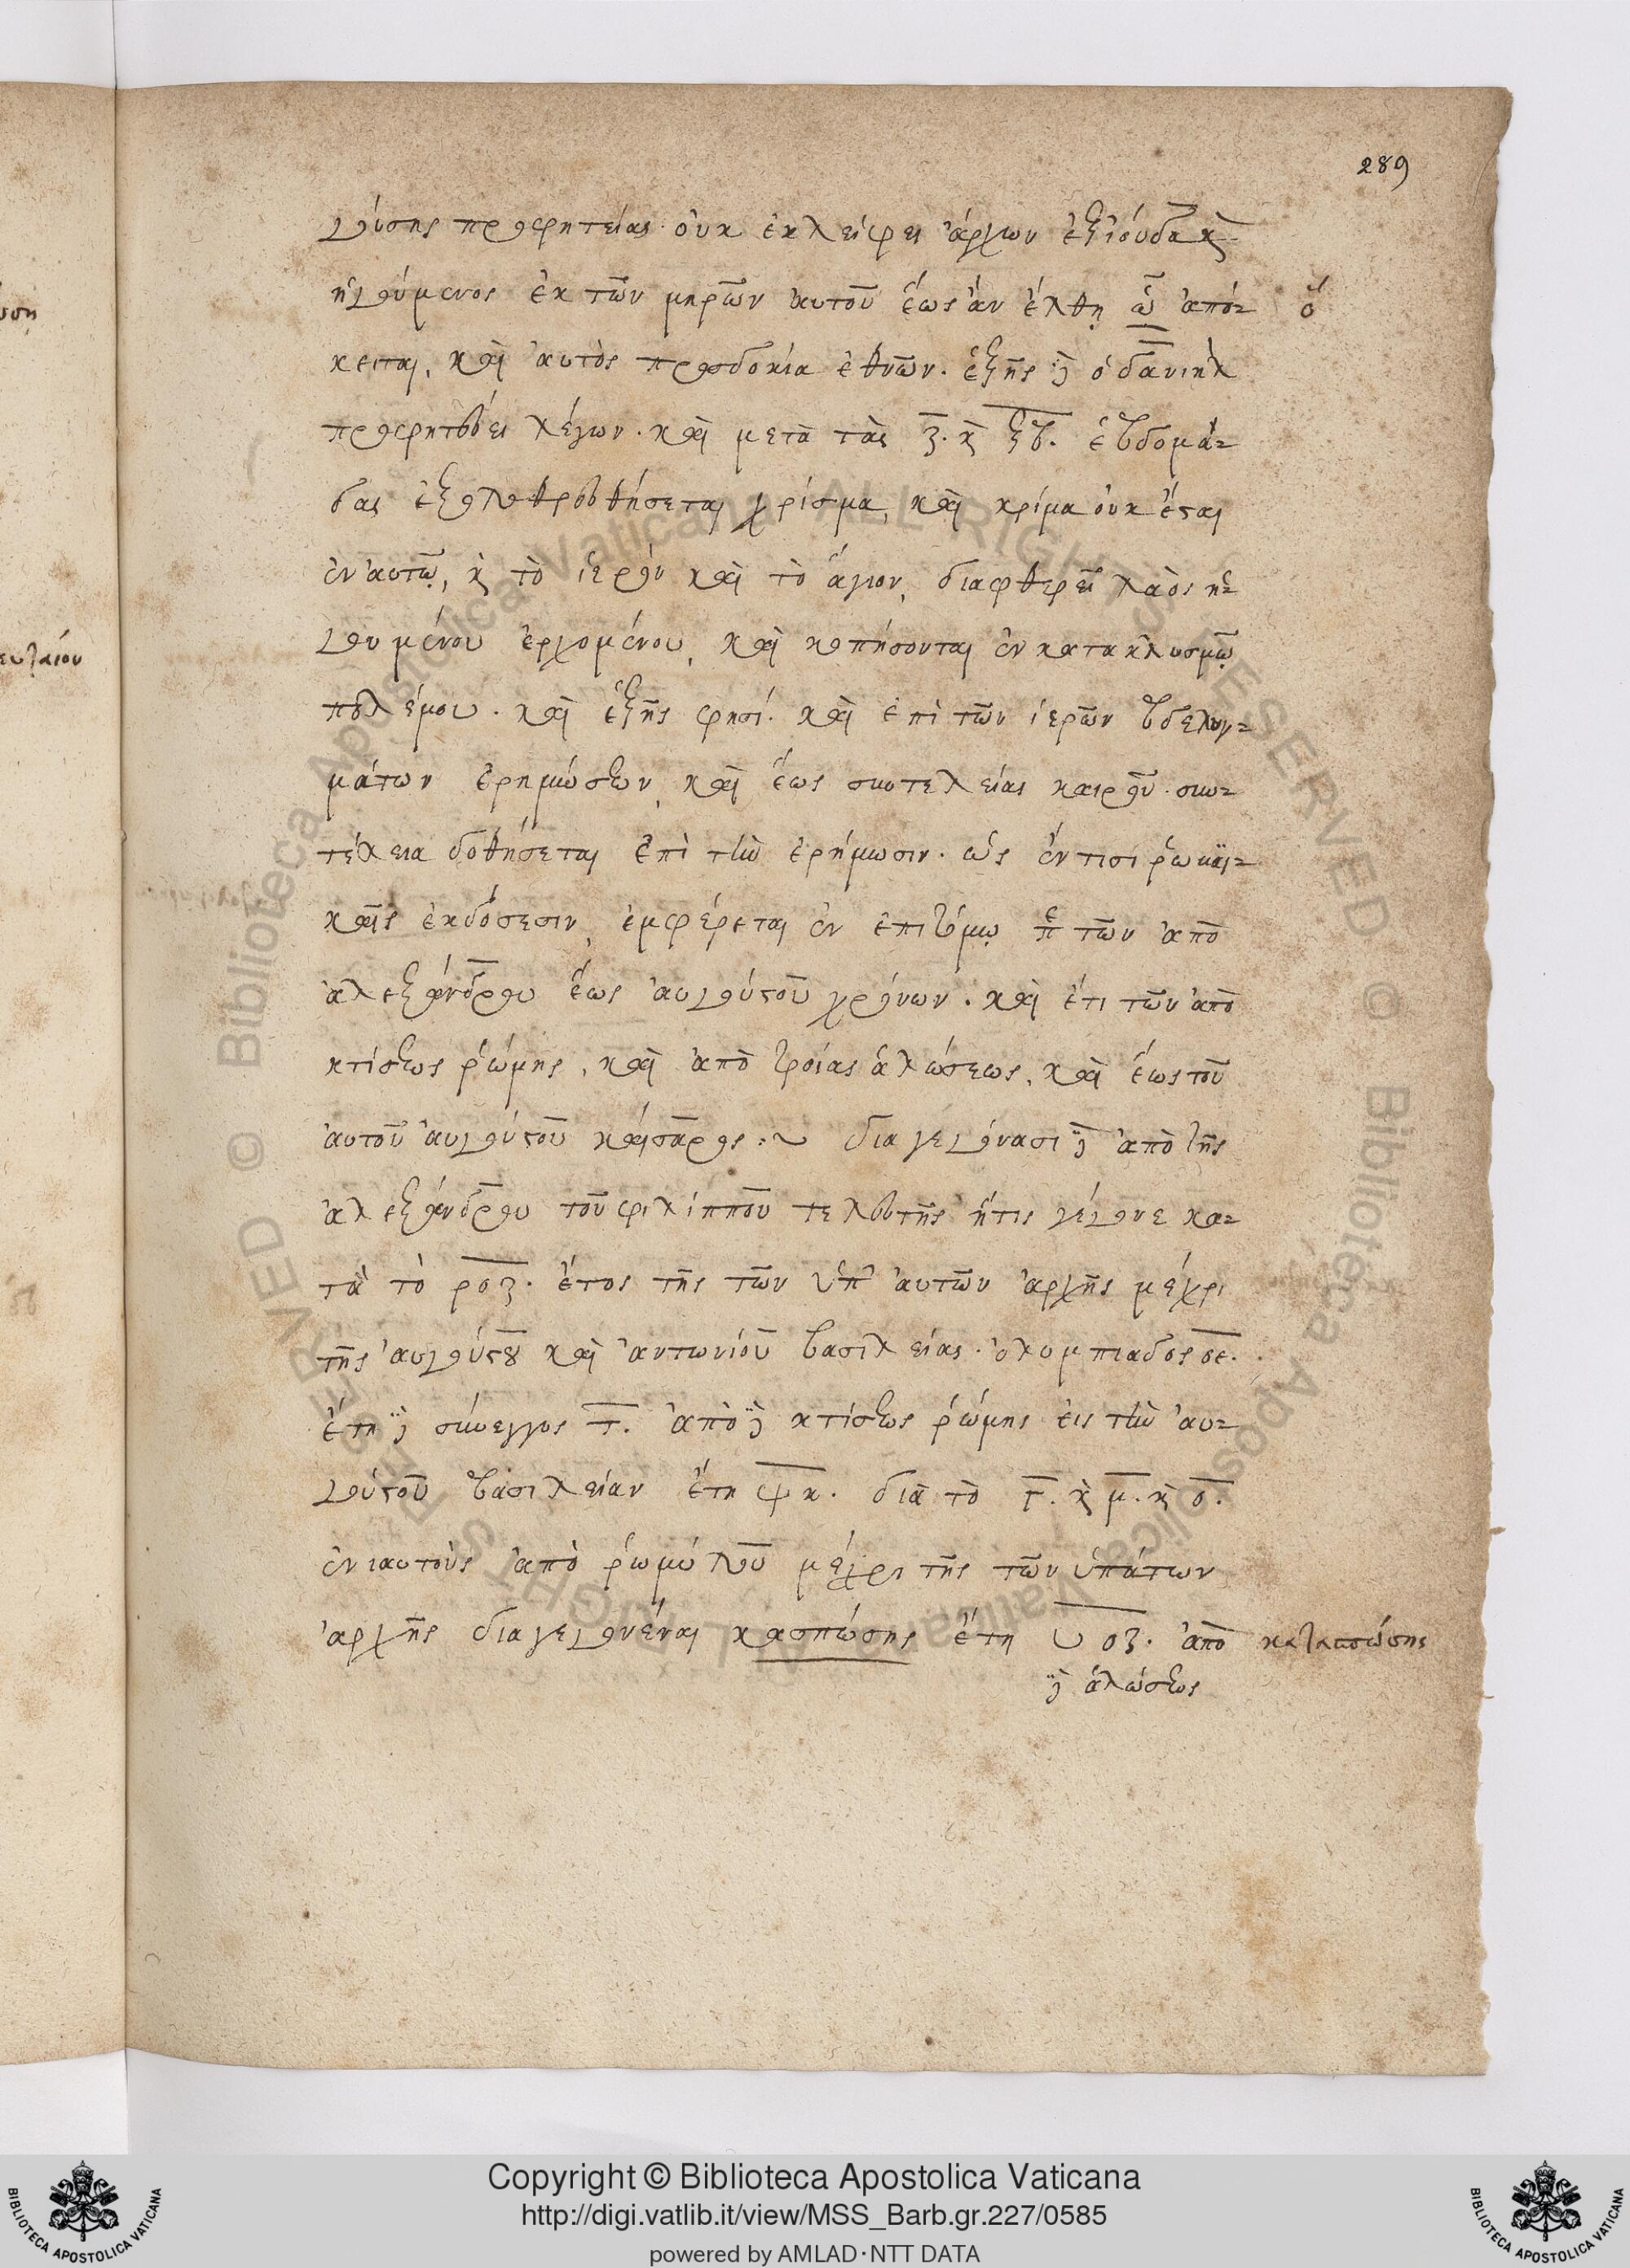 289
γούσης προφητείας· οὐκ ἐκλείψει ἄρχων ἐξ ἰούδα κ̀
ἡγούμενος ἐκ τῶν μηρῶν αὐτοῦ ἕως ἂν ἔλθῃ ὧ ἀπό= ὅ
κειται, καὶ αὐτὸς προσδοκία ἐθνῶν. ἑξῆς δὲ ὁ δανιὴλ
προφητεύει λέγων· καὶ μετὰ τὰς ζ. κ̀ ξβ. ἑβδομά=
δας ἐξολοθρευθήσεται χρίσμα, καὶ κρίμα οὐκ ἔσται
ἐν αὐτῷ, κ̀ τὸ ἱερὸν καὶ τὸ ἅγιον, διαφθερεῖ λαὸς ἡ=
γουμένου ἐρχομένου, καὶ κοπήσονται ἐν κατακλυσμῷ
πολέμου. καὶ ἑξῆς φησί. καὶ ἐπὶ τῶν ἱερῶν βδελυγ=
μάτων ἐρημώσεων, καὶ ἕως συντελείας καιροῦ. συν=
τέλεια δοθήσεται ἐπὶ τὴν ἐρήμωσιν. ὡς ἔν τισι ῥωμαϊ=
καῖς ἐκδόσεσιν, ἐμφέρεται ἐν ἐπιτόμῳ πε τῶν ἀπὸ
ἀλεξάνδρου ἕως αὐγούστου χρόνων. καὶ ἔτι τῶν ἀπὸ
κτίσεως ῥώμης, καὶ ἀπὸ τροίας ἁλώσεως, καὶ ἕως τοῦ
αὐτοῦ αὐγούστου καίσαρος :~ διαγεγόνασι δὲ ἀπὸ τῆς
ἀλεξάνδρου τοῦ φιλίππου τελευτῆς ἥτις γέγονε κα=
τὰ τὸ ροζ. ἔτος τῆς τῶν ὑπ' αὐτῶν ἀρχῆς μέχρι
τῆς αὐγούστου καὶ ἀντωνίου βασιλείας. ὀλυμπιάδος σε.
ἔτη δὲ σύνεγγος τ. ἀπὸ δὲ κτίσεως ῥώμης εἰς τὴν αὐ=
γούστου βασιλείαν ἔτη ψκ. διὰ τὸ γ. κ̀ μ. κ̀ σ.
ἐνιαυτοὺς ἀπὸ ῥωμύλου μέχρι τῆς τῶν ὑπάτων
ἀρχῆς διαγεγονέναι κασπώσης ἔτη υοζ. ἀπὸ καταπτώσης
δὲ ἁλώσεως
Copyright © Biblioteca Apostolica Vaticana
http://digi.vatlib.it/view/MSS_Barb.gr.227/0585
powered by AMLAD·NTT DATA